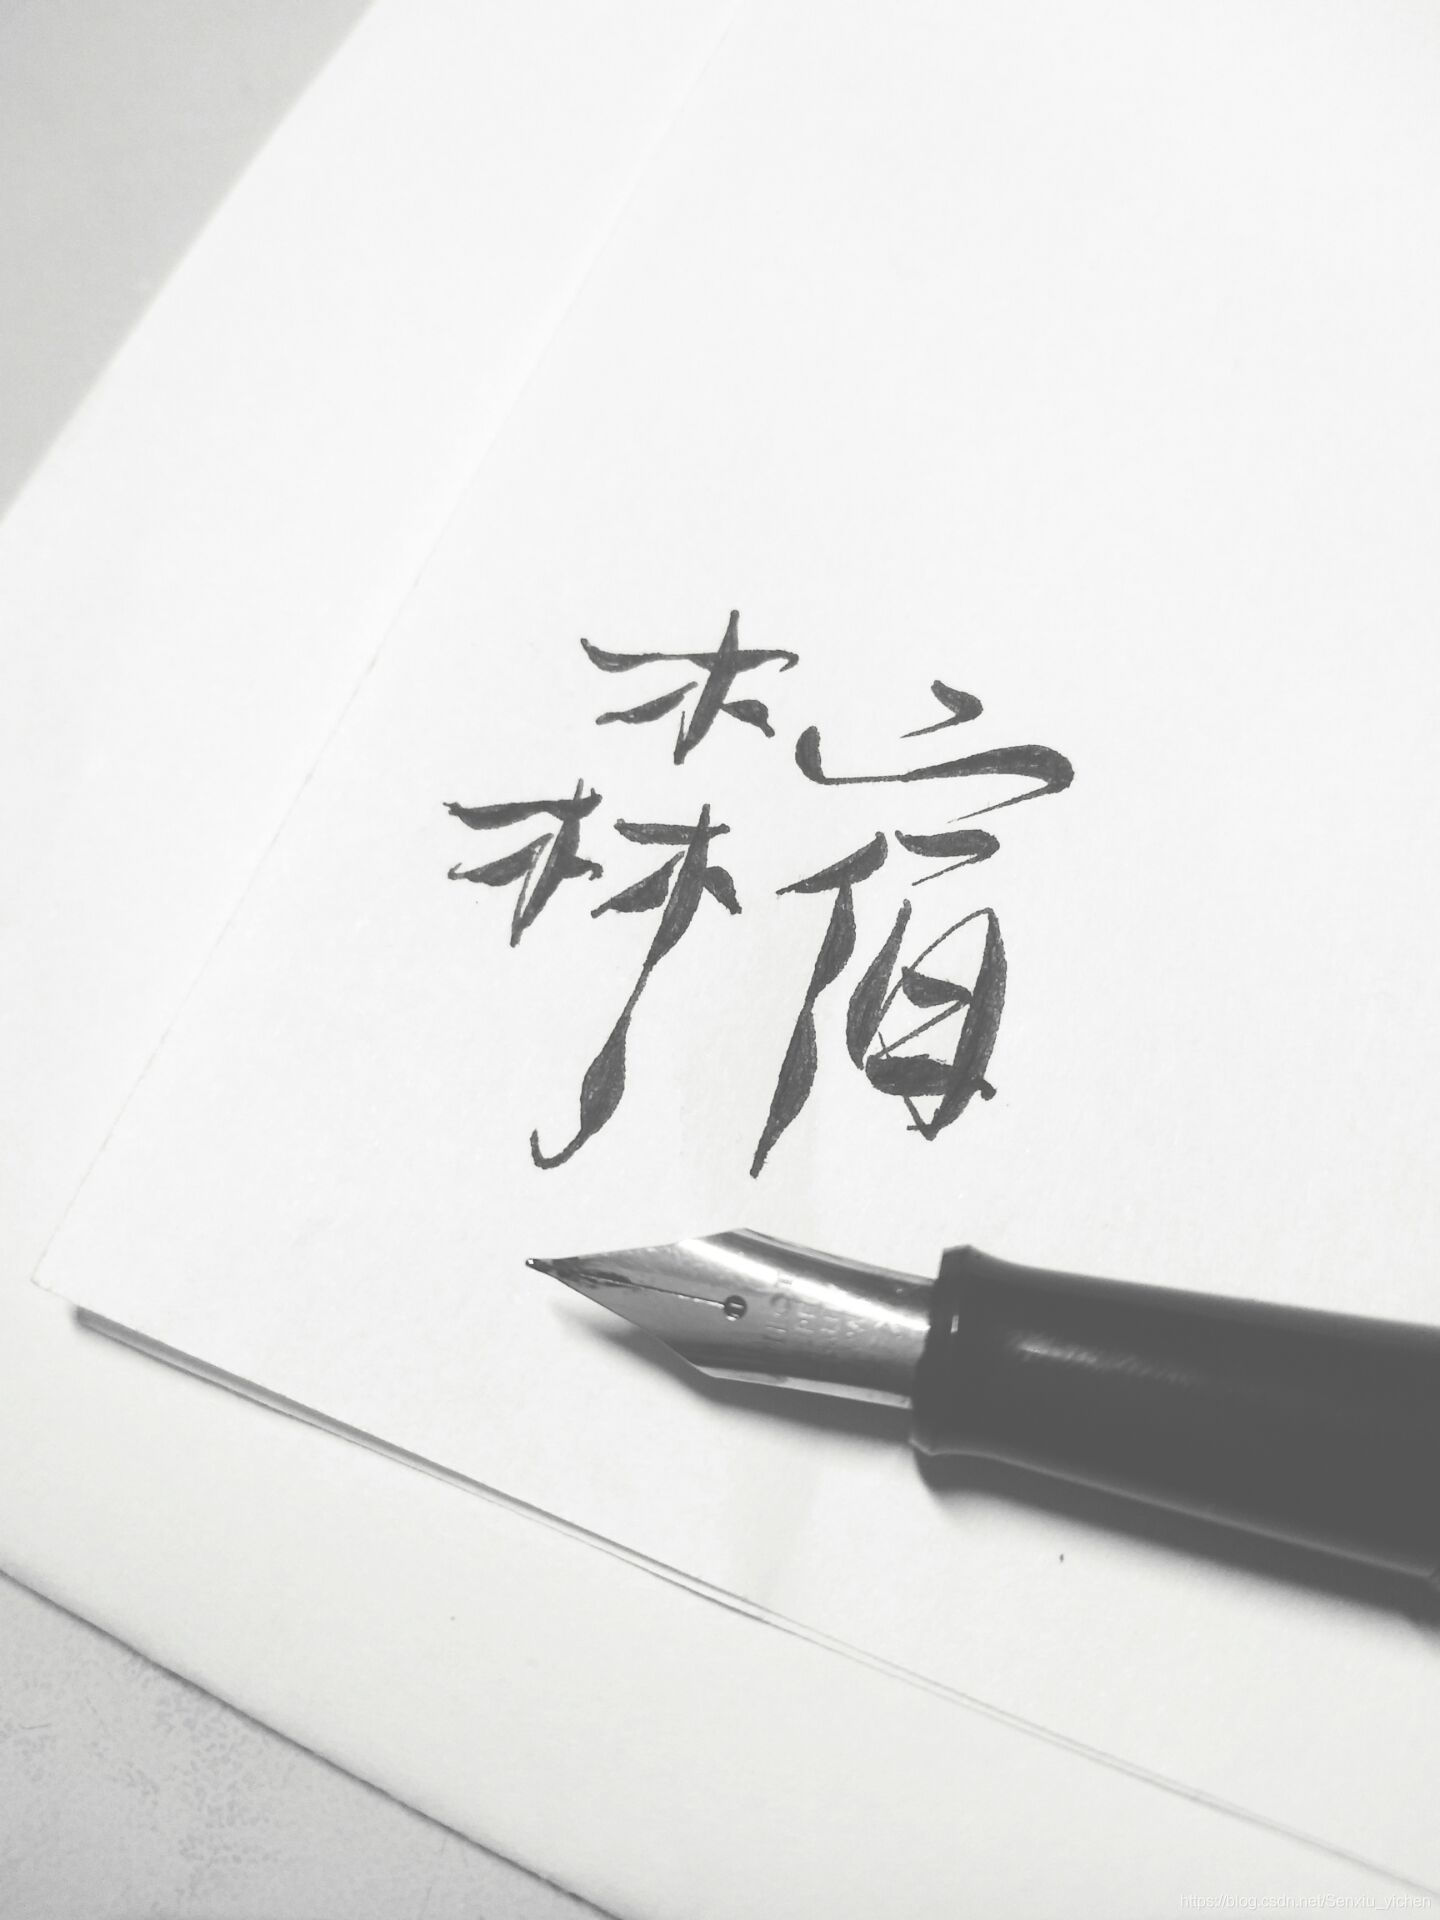 森宿
https://blog.csdn.net/Senxiu_yichen